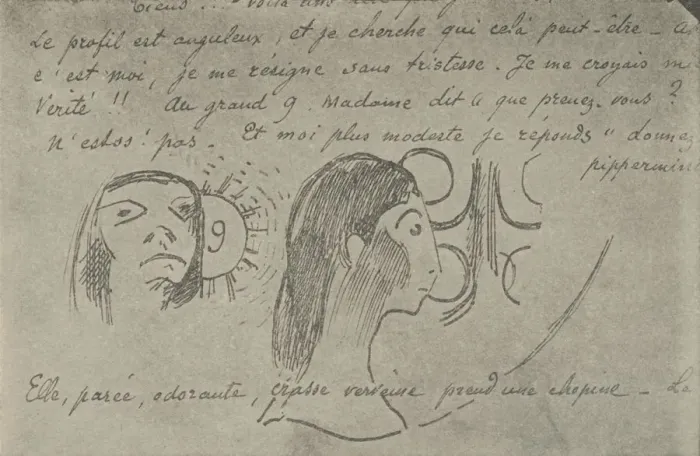 Tiens ... voilà dans
Le profil est anguleux, et je cherche qui celà peut-être -
c'est moi, je me résigne sans tristesse. Je me croyais
Vérité !! Au grand 9. Madame dit à que prenez-vous ?
n'estos! pas. Et moi plus modeste je réponds " donnez
pippermint
9
Elle, parée, odorante, crasse verveine prend une chopine - Le